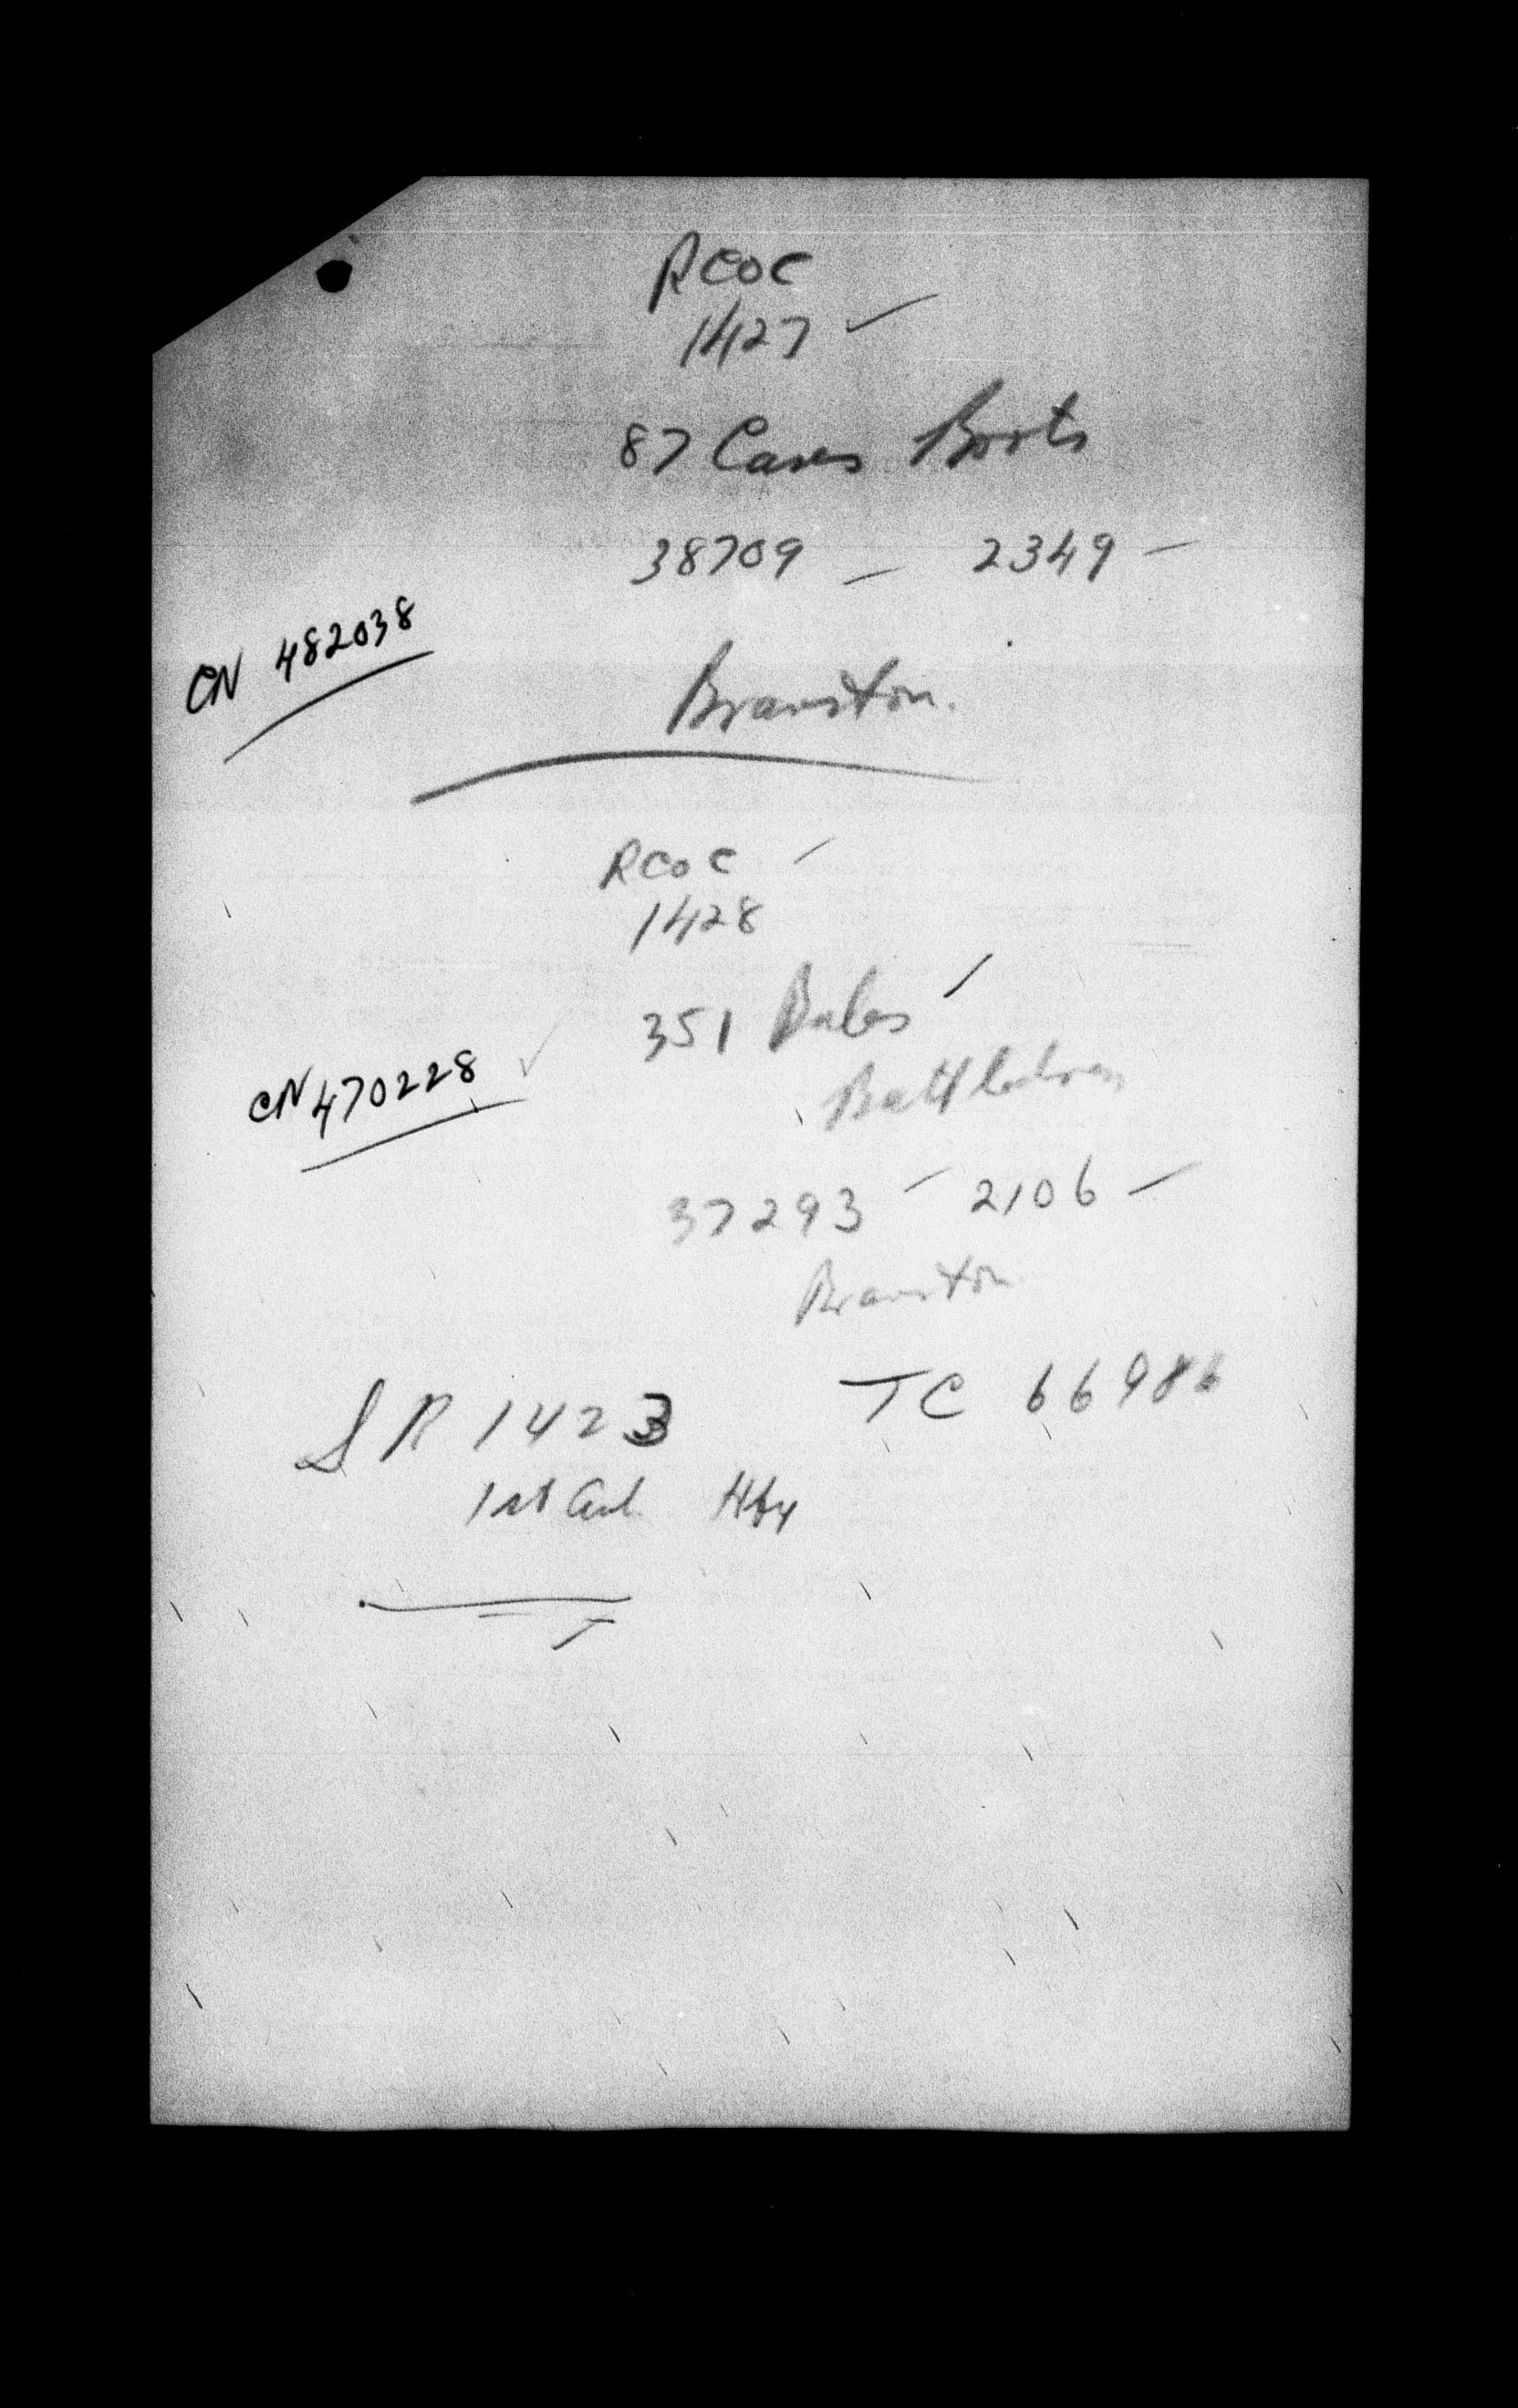 RCOC
1427 ✓
87 Cases Boots
38709 — 2349 —
CN 482038
Branston.
RCOC
1428
351 Bales
CN 470228 ✓
Battledress
37293 — 2106 —
Branston
TC 66986
SR 1423
1st Cdn